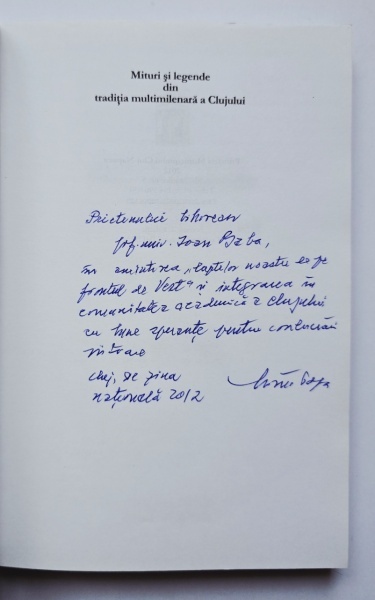 Mituri și legende
din
tradiția multimilenară a Clujului
Prietenului
prof. univ. Ioan
în amintirea „luptelor noastre de pe
frontul de Vest” și integrarea în
comunitatea academică a Clujului
cu bune speranțe pentru conlucrări
viitoare
Cluj, de ziua
națională 2012